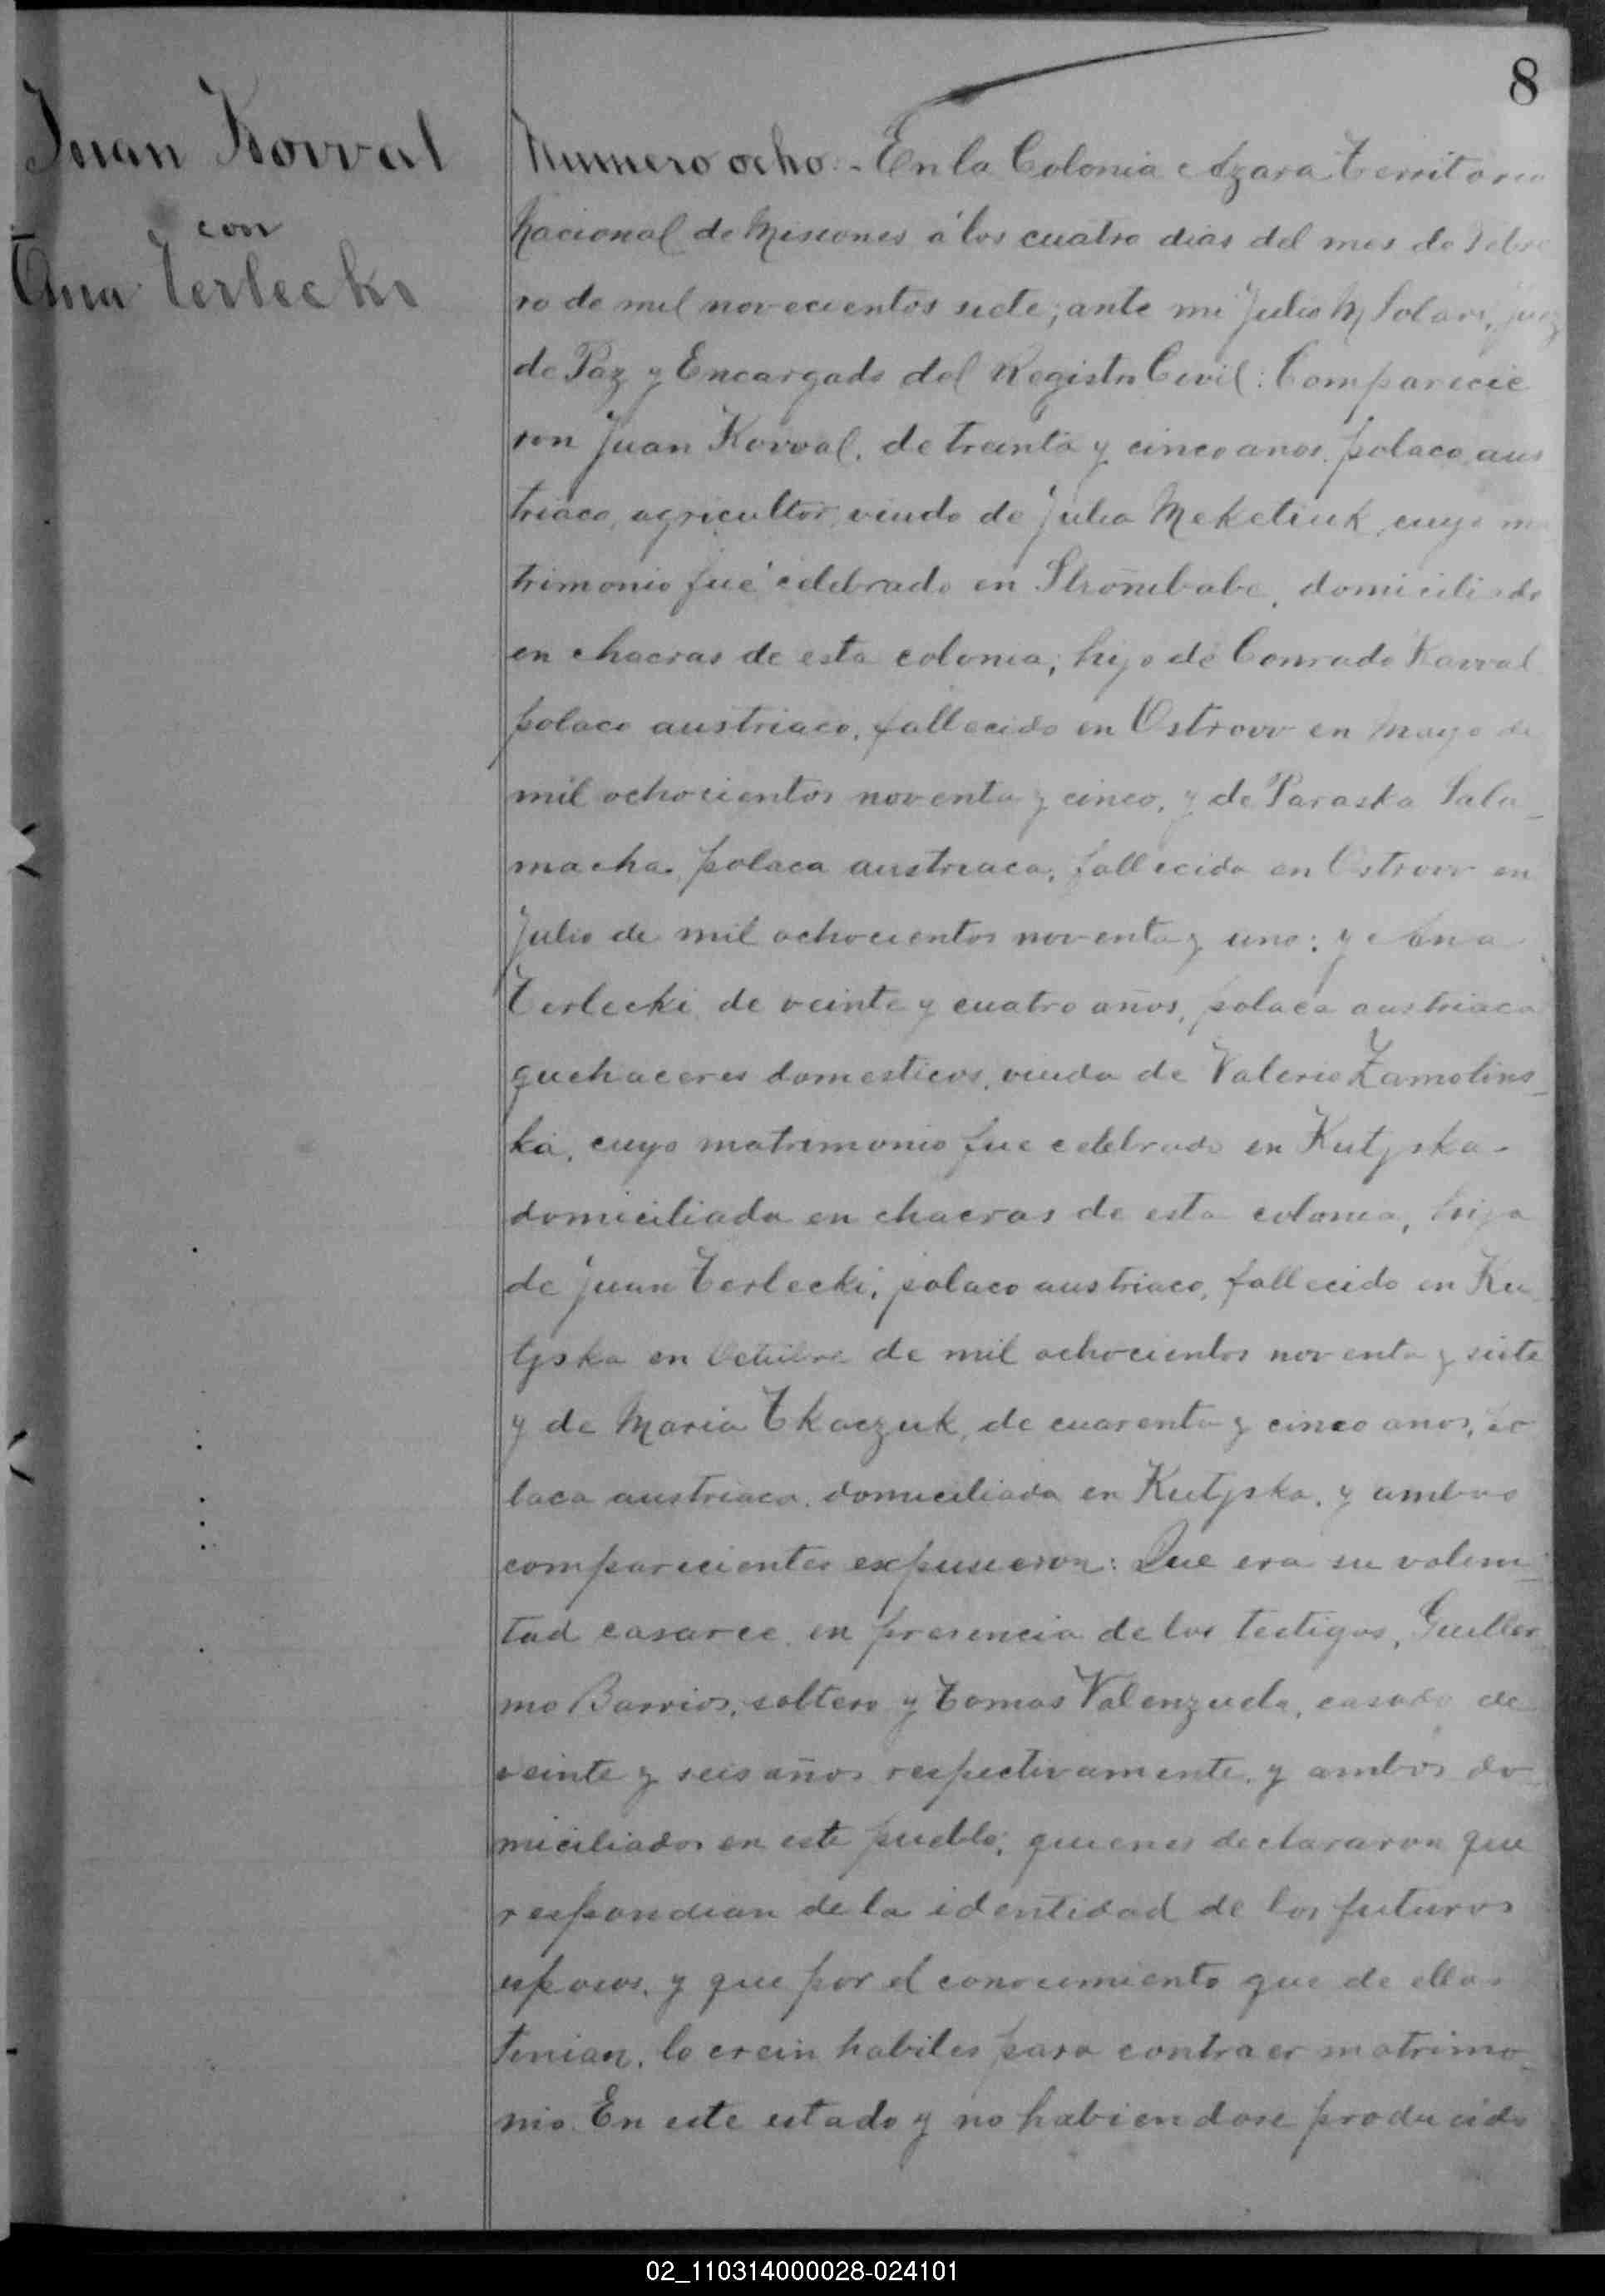 8
Juan Kovval
con
Ana Terlecki
Numero ocho.- En la Colonia Azara Territorio
Nacional de Misiones á los cuatro dias del mes de Febre
ro de mil novecientos siete; ante mi Julio M Solari, Juez
de Paz y Encargado del Registro Civil: Comparecie
ron Juan Kovval, de treinta y cinco anos, polaco aus
triaco, agricultor, viudo de Julia Meketiuk, cuyo ma
trimonio fué celebrado en, domiciliado
en chacras de esta colonia; hijo de Conrado Kovval
polaco austriaco, fallecido en Ostrovv en Mayo de
mil ochocientos noventa y cinco, y de Paraska Sala_
macha polaca austriaca, fallecida en Ostrovv en
Julio de mil ochocientos noventa y uno: y Ana
Terlecki de veinte y cuatro años, polaca austriaca
quehaceres domesticos, viuda de Valerio Zamolins_
ki, cuyo matrimonio fue celebrado en Kutyska-
domiciliada en chacras de esta colonia, hija
de Juan Terlecki, polaco austriaco, fallecido en Ku
tyska en Octubre de mil ochocientos noventa y siete
y de Maria Tkaczuk, de cuarenta y cinco anos, po
laca austriaca, domiciliada en Kutyska, y ambos
comparecientes expusieron: Que era su volun_
tad casarce en presencia de los testigos, Guiller
mo Barrios, soltero y Tomas Valenzuela, casado de
veinte y seis años respectivamente, y ambos do
miciliados en este pueblo; quienes declararon que
respondian de la identidad de los futuros
esposos, y que por el conocimiento que de ellos
tenian, lo crein habiles para contraer matrimo_
nio. En este estado y no habiendose producido
02_110314000028-024101